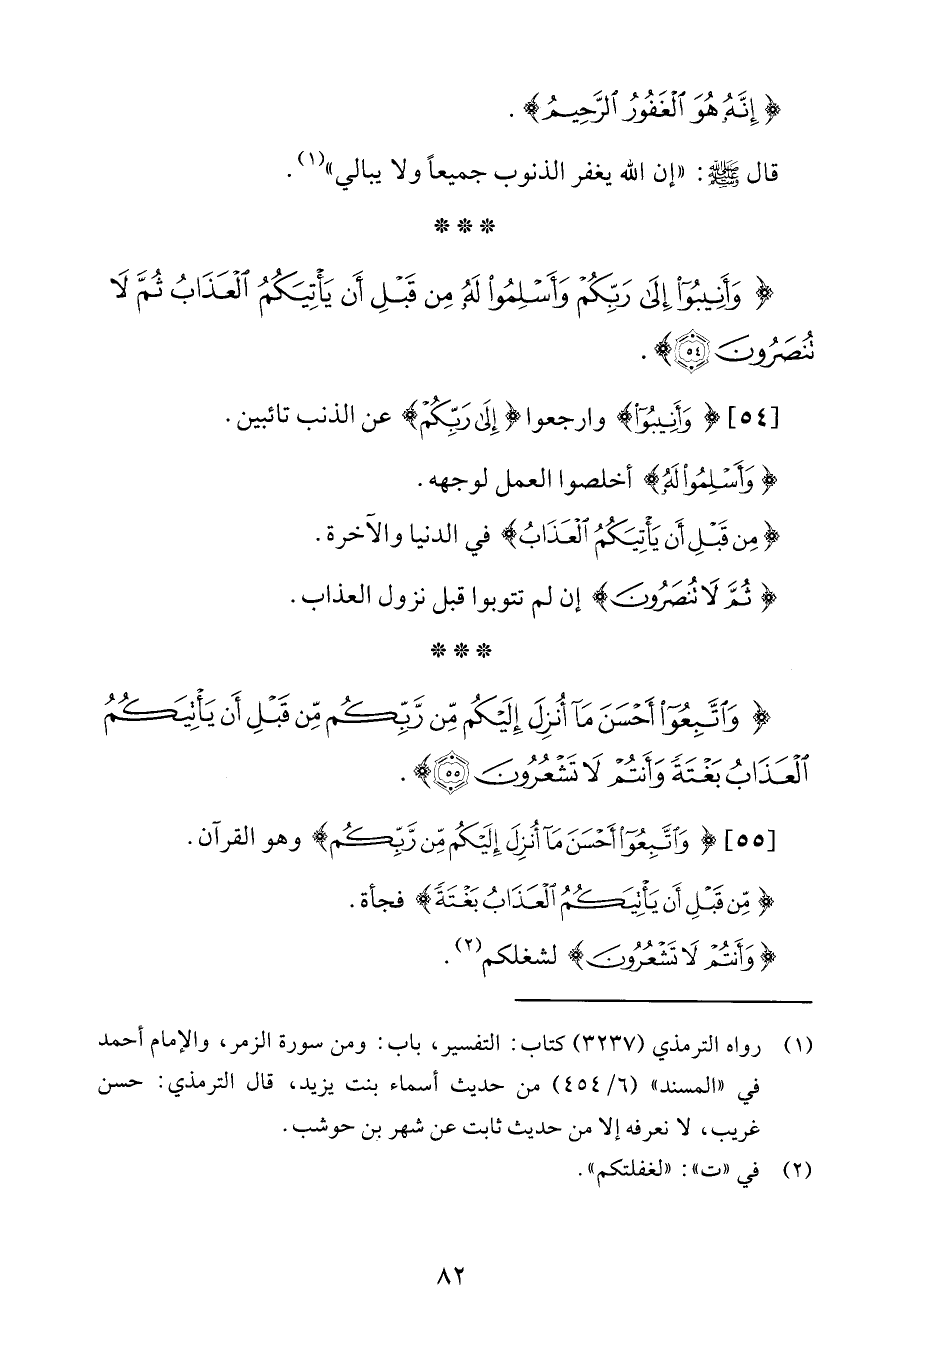 ﴿ إِنَّهُۥ هُوَ ٱلْغَفُورُ ٱلرَّحِيمُ ﴾ .
قال ﷺ : «إن الله يغفر الذنوب جميعاً ولا يبالي»(١) .
* * *
﴿ وَأَنِيبُوٓا۟ إِلَىٰ رَبِّكُمْ وَأَسْلِمُوا۟ لَهُۥ مِن قَبْلِ أَن يَأْتِيَكُمُ ٱلْعَذَابُ ثُمَّ لَا
تُنصَرُونَ ٥٤ ﴾ .
[٥٤] ﴿ وَأَنِيبُوٓا۟ ﴾ وارجعوا ﴿ إِلَىٰ رَبِّكُمْ ﴾ عن الذنب تائبين .
﴿ وَأَسْلِمُوا۟ لَهُۥ ﴾ أخلصوا العمل لوجهه .
﴿ مِن قَبْلِ أَن يَأْتِيَكُمُ ٱلْعَذَابُ ﴾ في الدنيا والآخرة .
﴿ ثُمَّ لَا تُنصَرُونَ ﴾ إن لم تتوبوا قبل نزول العذاب .
* * *
﴿ وَٱتَّبِعُوٓا۟ أَحْسَنَ مَآ أُنزِلَ إِلَيْكُم مِّن رَّبِّكُم مِّن قَبْلِ أَن يَأْتِيَكُمُ
ٱلْعَذَابُ بَغْتَةً وَأَنتُمْ لَا تَشْعُرُونَ ٥٥ ﴾ .
[٥٥] ﴿ وَٱتَّبِعُوٓا۟ أَحْسَنَ مَآ أُنزِلَ إِلَيْكُم مِّن رَّبِّكُم ﴾ وهو القرآن .
﴿ مِّن قَبْلِ أَن يَأْتِيَكُمُ ٱلْعَذَابُ بَغْتَةً ﴾ فجأة .
﴿ وَأَنتُمْ لَا تَشْعُرُونَ ﴾ لشغلكم(٢) .
(١) رواه الترمذي (٣٢٣٧) كتاب : التفسير، باب : ومن سورة الزمر، والإمام أحمد
في «المسند» (٦/ ٤٥٤) من حديث أسماء بنت يزيد، قال الترمذي : حسن
غريب، لا نعرفه إلا من حديث ثابت عن شهر بن حوشب .
(٢) في «ت» : «لغفلتكم» .
٨٢